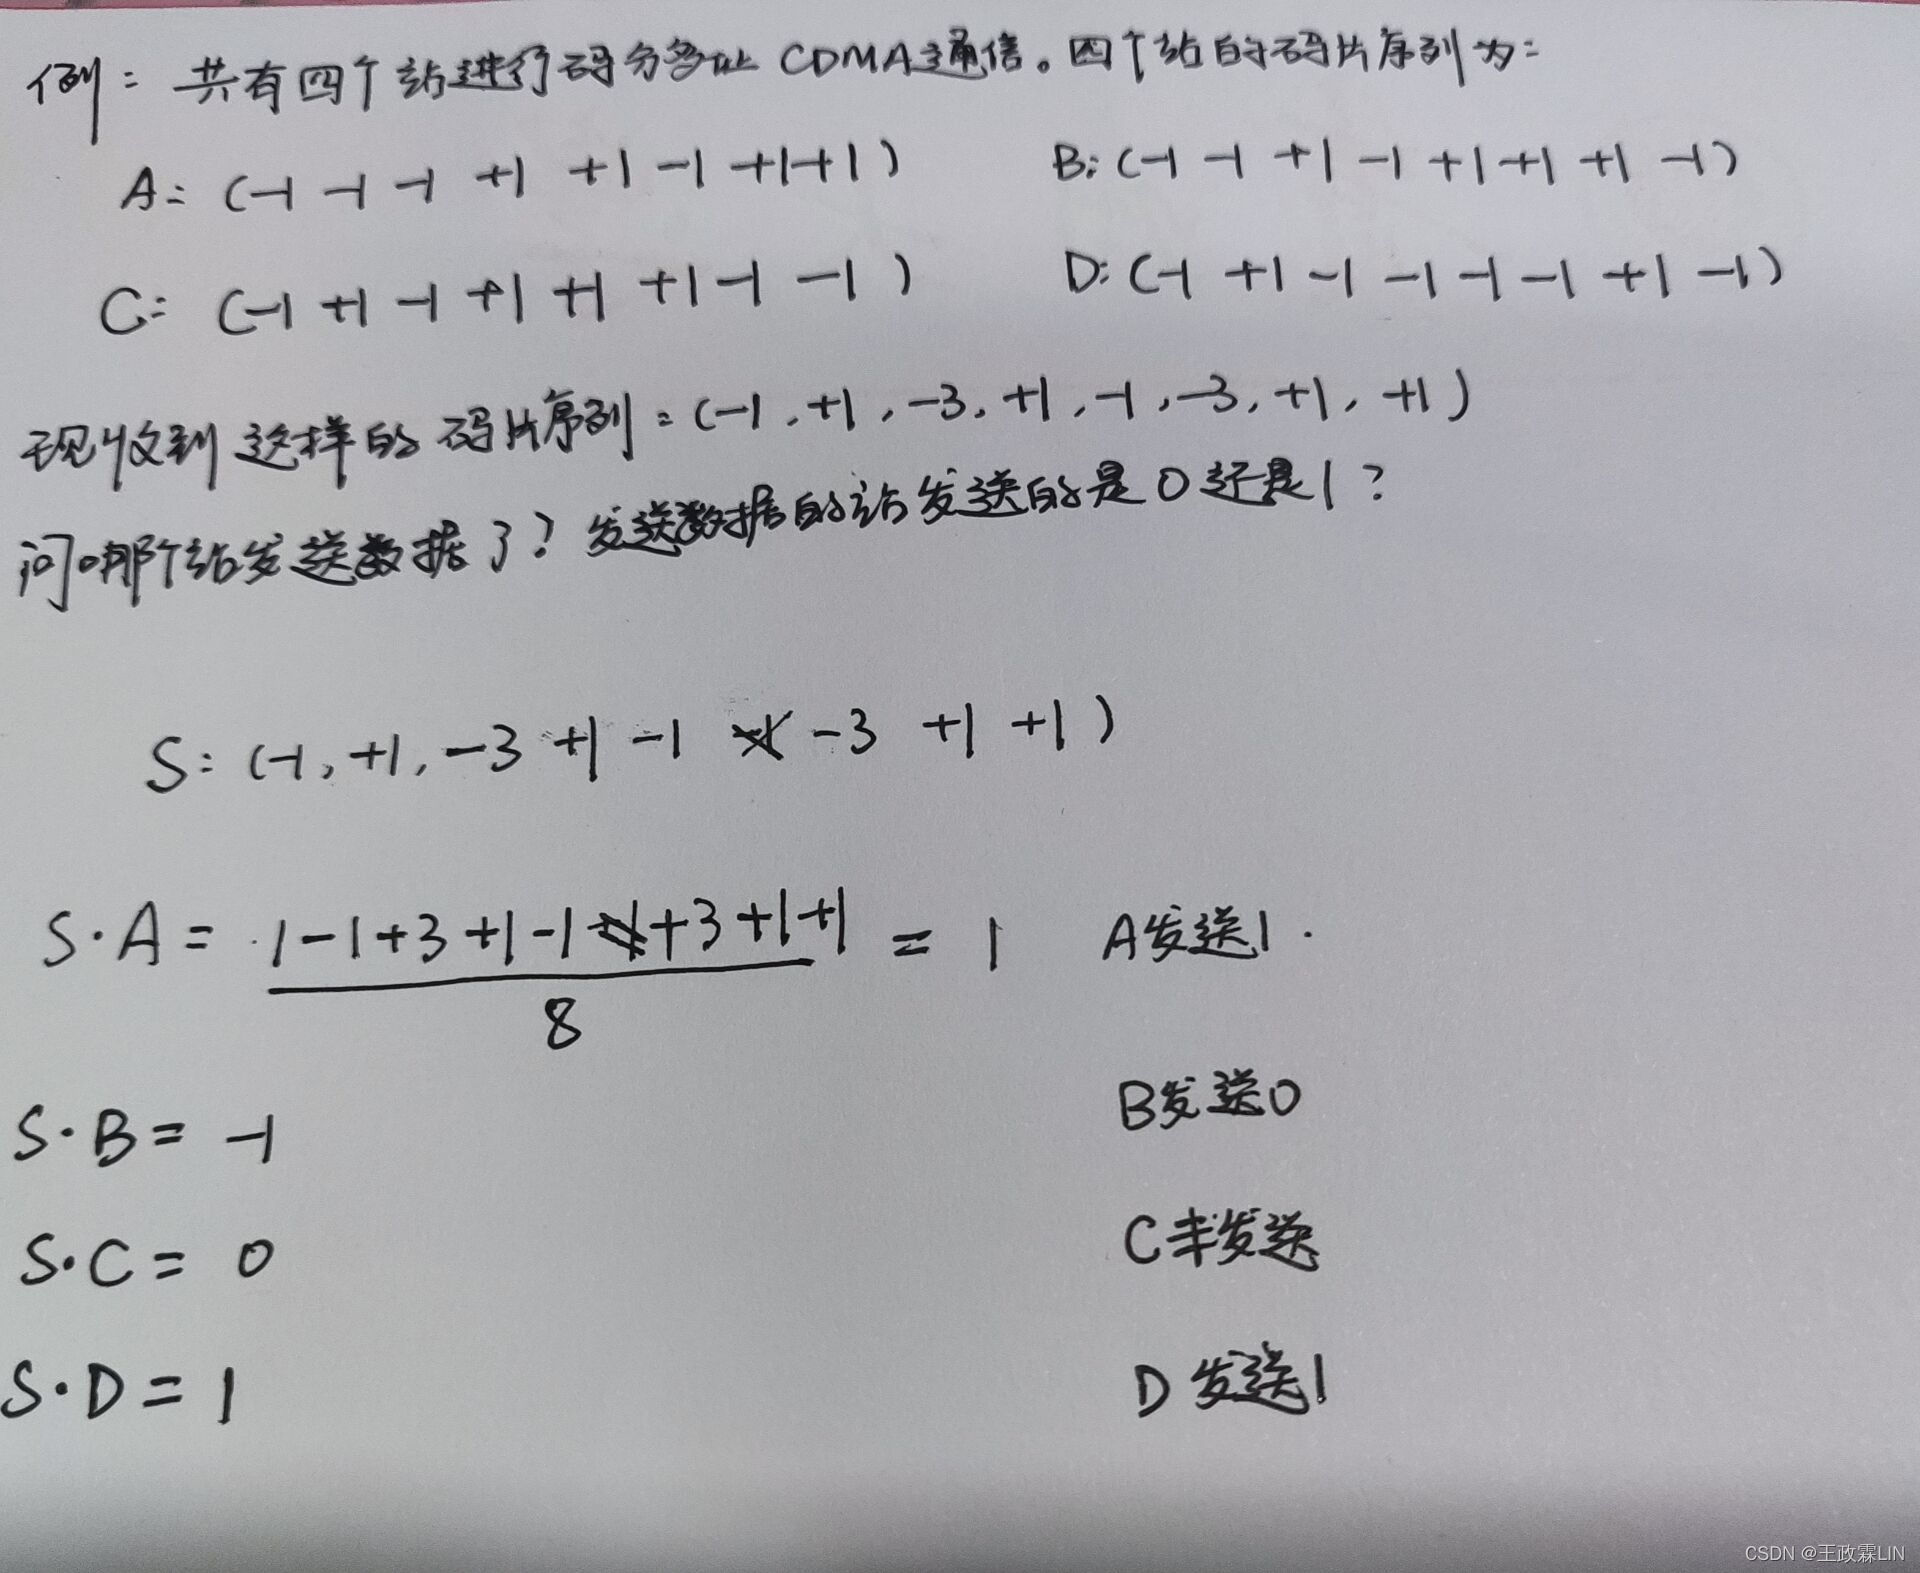 例: 共有四个站进行码分多址 CDMA通信。四个站的码片序列为:
A: (-1 -1 -1 +1 +1 -1 +1+1) B: (-1 -1 +1 -1 +1 +1 +1 -1)
C: (-1 +1 -1 +1 +1 +1 -1 -1) D: (-1 +1 -1 -1 -1 -1 +1 -1)
现收到这样的码片序列: (-1, +1, -3, +1, -1, -3, +1, +1)
问哪个站发送数据了? 发送数据的站发送的是0还是1?
S: (-1, +1, -3 +1 -1 -3 +1 +1)
S·A = 1-1+3+1-1+3+1+1 = 1 A发送1.
8
S·B = -1 B发送0
S·C = 0 C未发送
S·D = 1 D发送1
CSDN @王政霖LIN